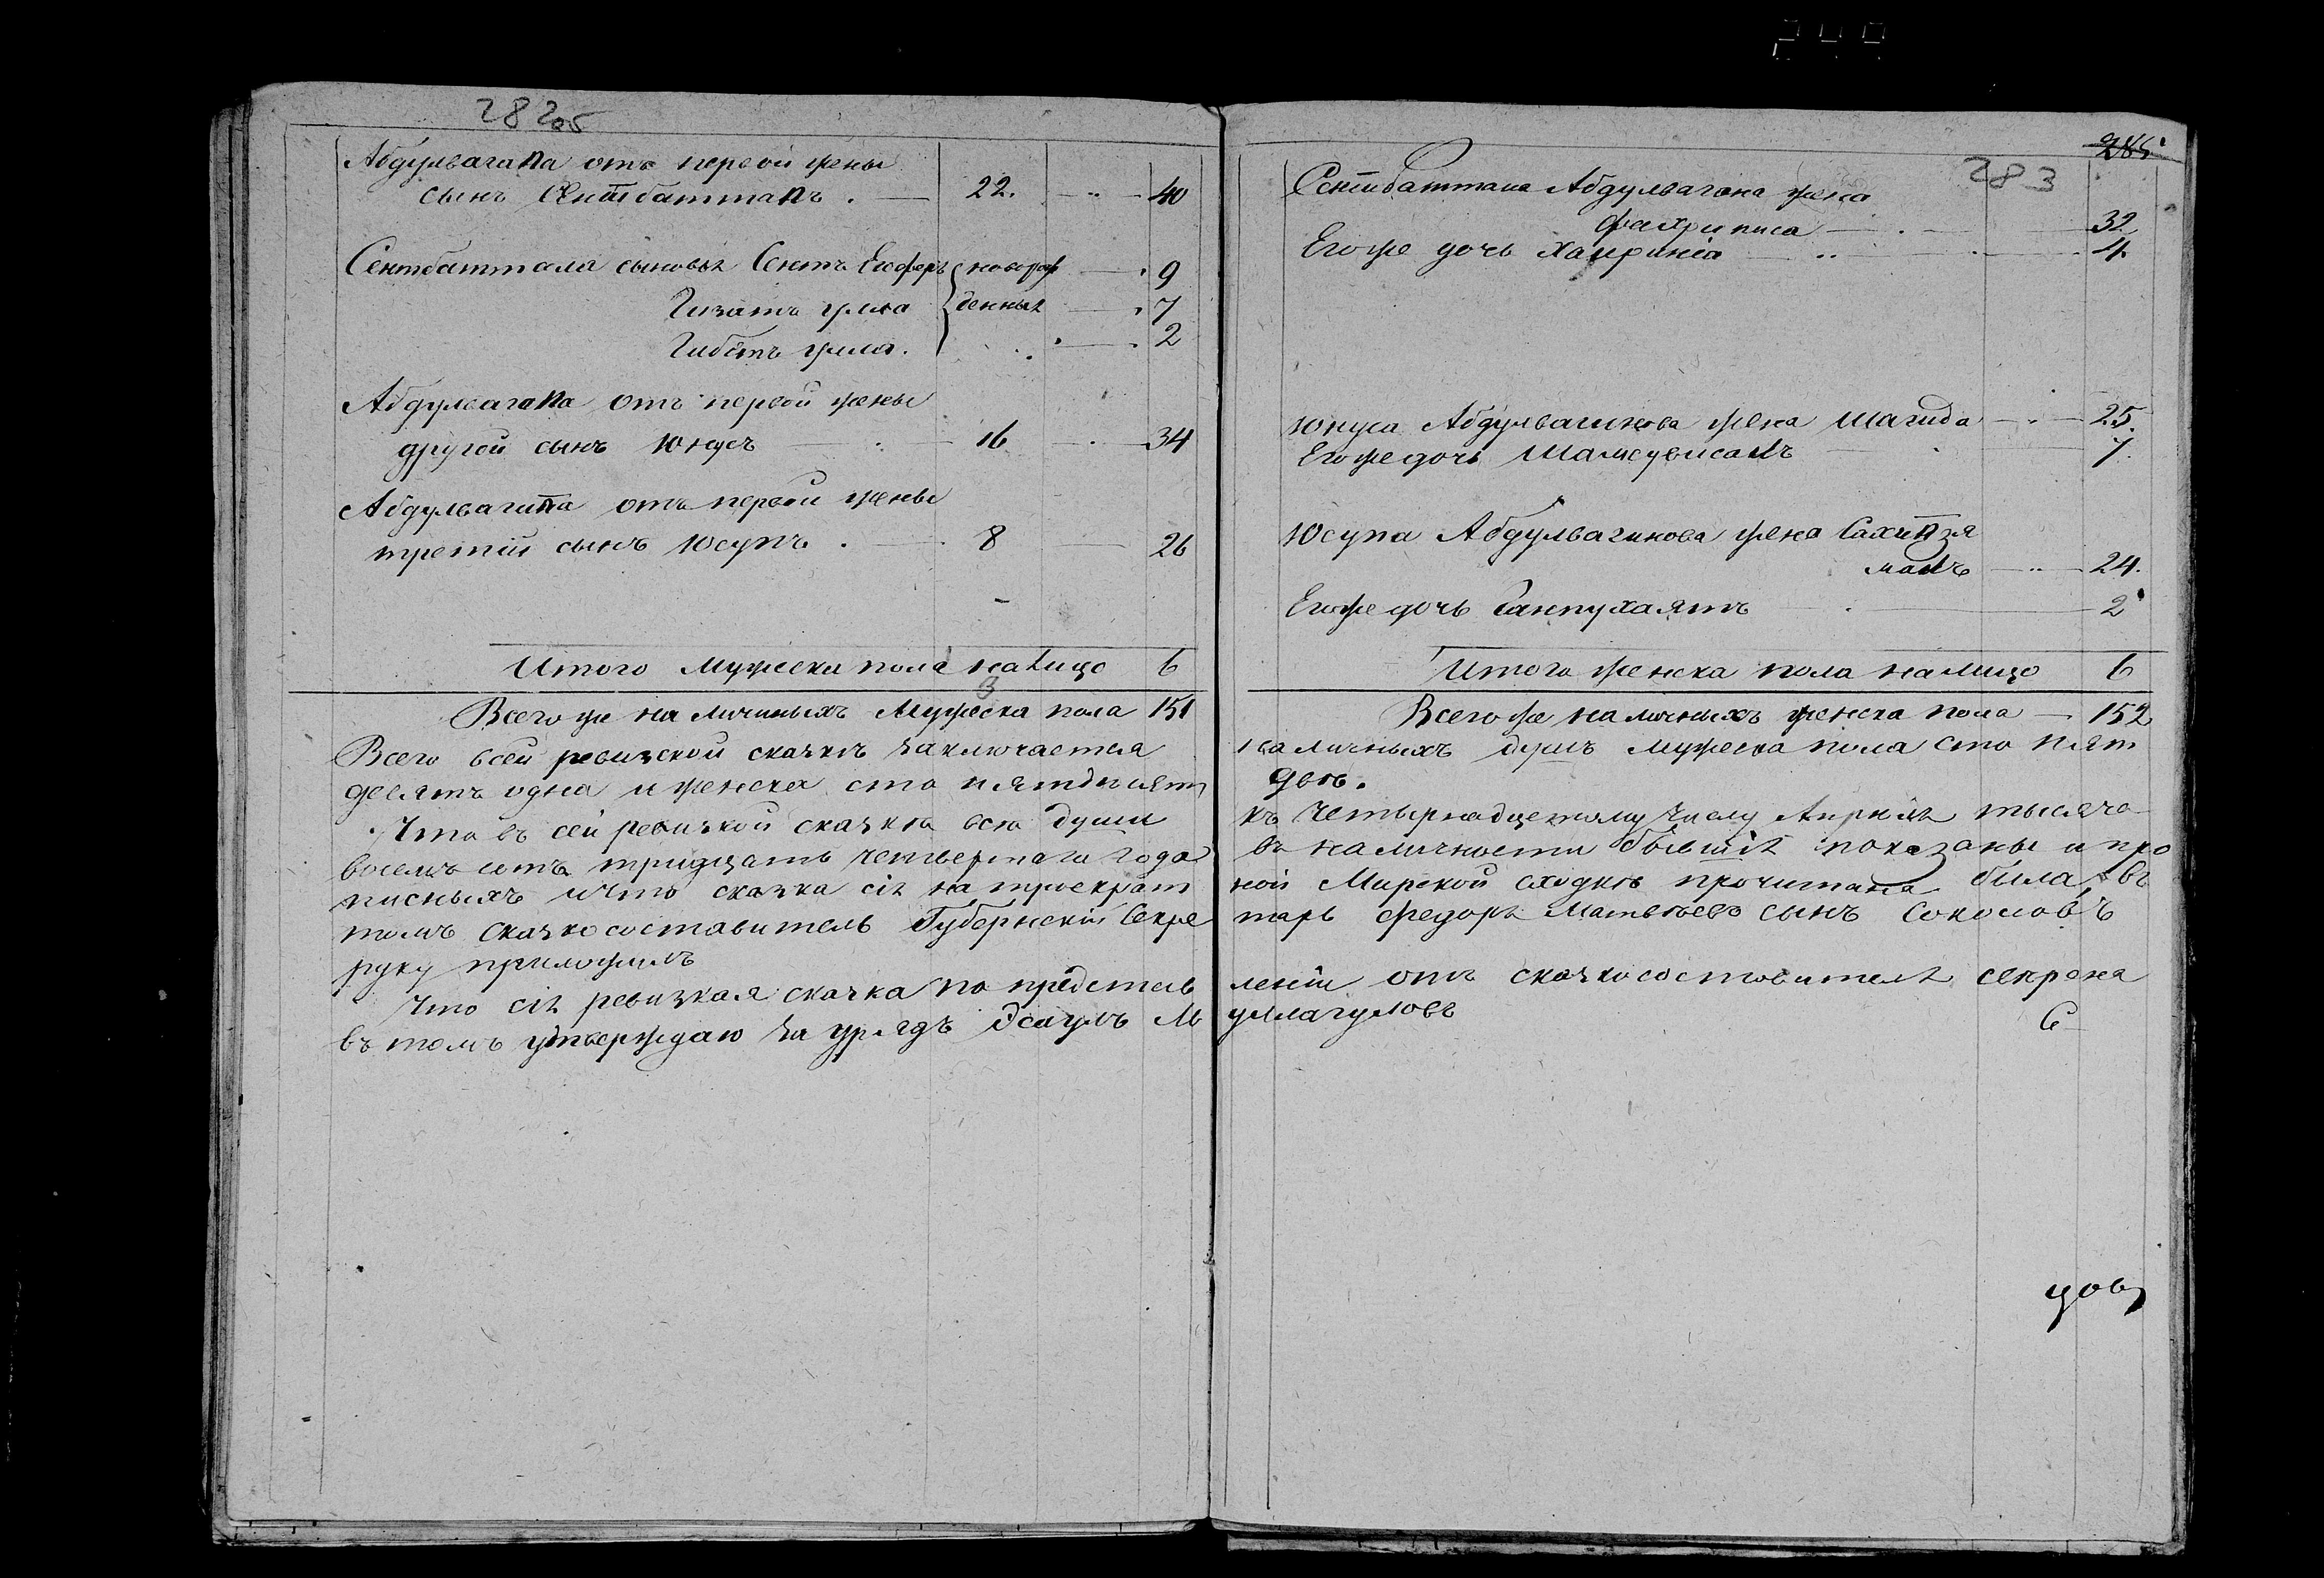 282об
Абдулвагапа отъ первой жены
сынъ Сеитбатталъ . 22. 40
Сеитбаттала сыновья Сеитъ Егоферъ новорож 9
Гизатъ улла денныя 7
Гибатъ улла. 2
Абдулвагапа отъ первой жены
другой сынъ Юнусъ 16 34
Абдулвагапа отъ первой жены
третій сынъ Юсупъ . 8 26
Итого мужеска пола налицо 6
Всего же на личныхъ Мужеска пола 151
Всего всей ревизской сказкѣ заключается
десятъ одна и женска сто пятдесятъ
Что въ сей ревизкой сказкѣ всѣ души
восемъ сотъ тридцать четвертаго года
писныхъ и что сказка сія на троекрат
томъ сказкосоставитель Губернскій Секре
руку приложилъ
Что сія ревизкая сказка по представ
въ томъ утверждаю За урядъ Эсаулъ М
285
283
Сеитбаттала Абдулвагапа жена
Фахриниса 32
Его же дочь Хаирниса 4.
Юнуса Абдулвагипова жена Шагида 25.
Егоже дочь Шамсувисалъ 7.
Юсупа Абдулвагипова жена Сахипзя
малъ 24.
Егоже дочь Банпухаятъ 2
Итого женска пола налицо 6
Всего же на личныхъ женска пола 152
наличныхъ душъ мужеска пола сто пят
двѣ.
къ четырнадцетому числу Апреля тысяча
въ наличности бывшія показаны и про
ной Мирской сходкѣ прочитана была въ
тарь Федоръ Матвеевъ сынъ Соколовъ
леніи отъ сказкосоставителя скрепа
уллагуловъ
С
цовъ